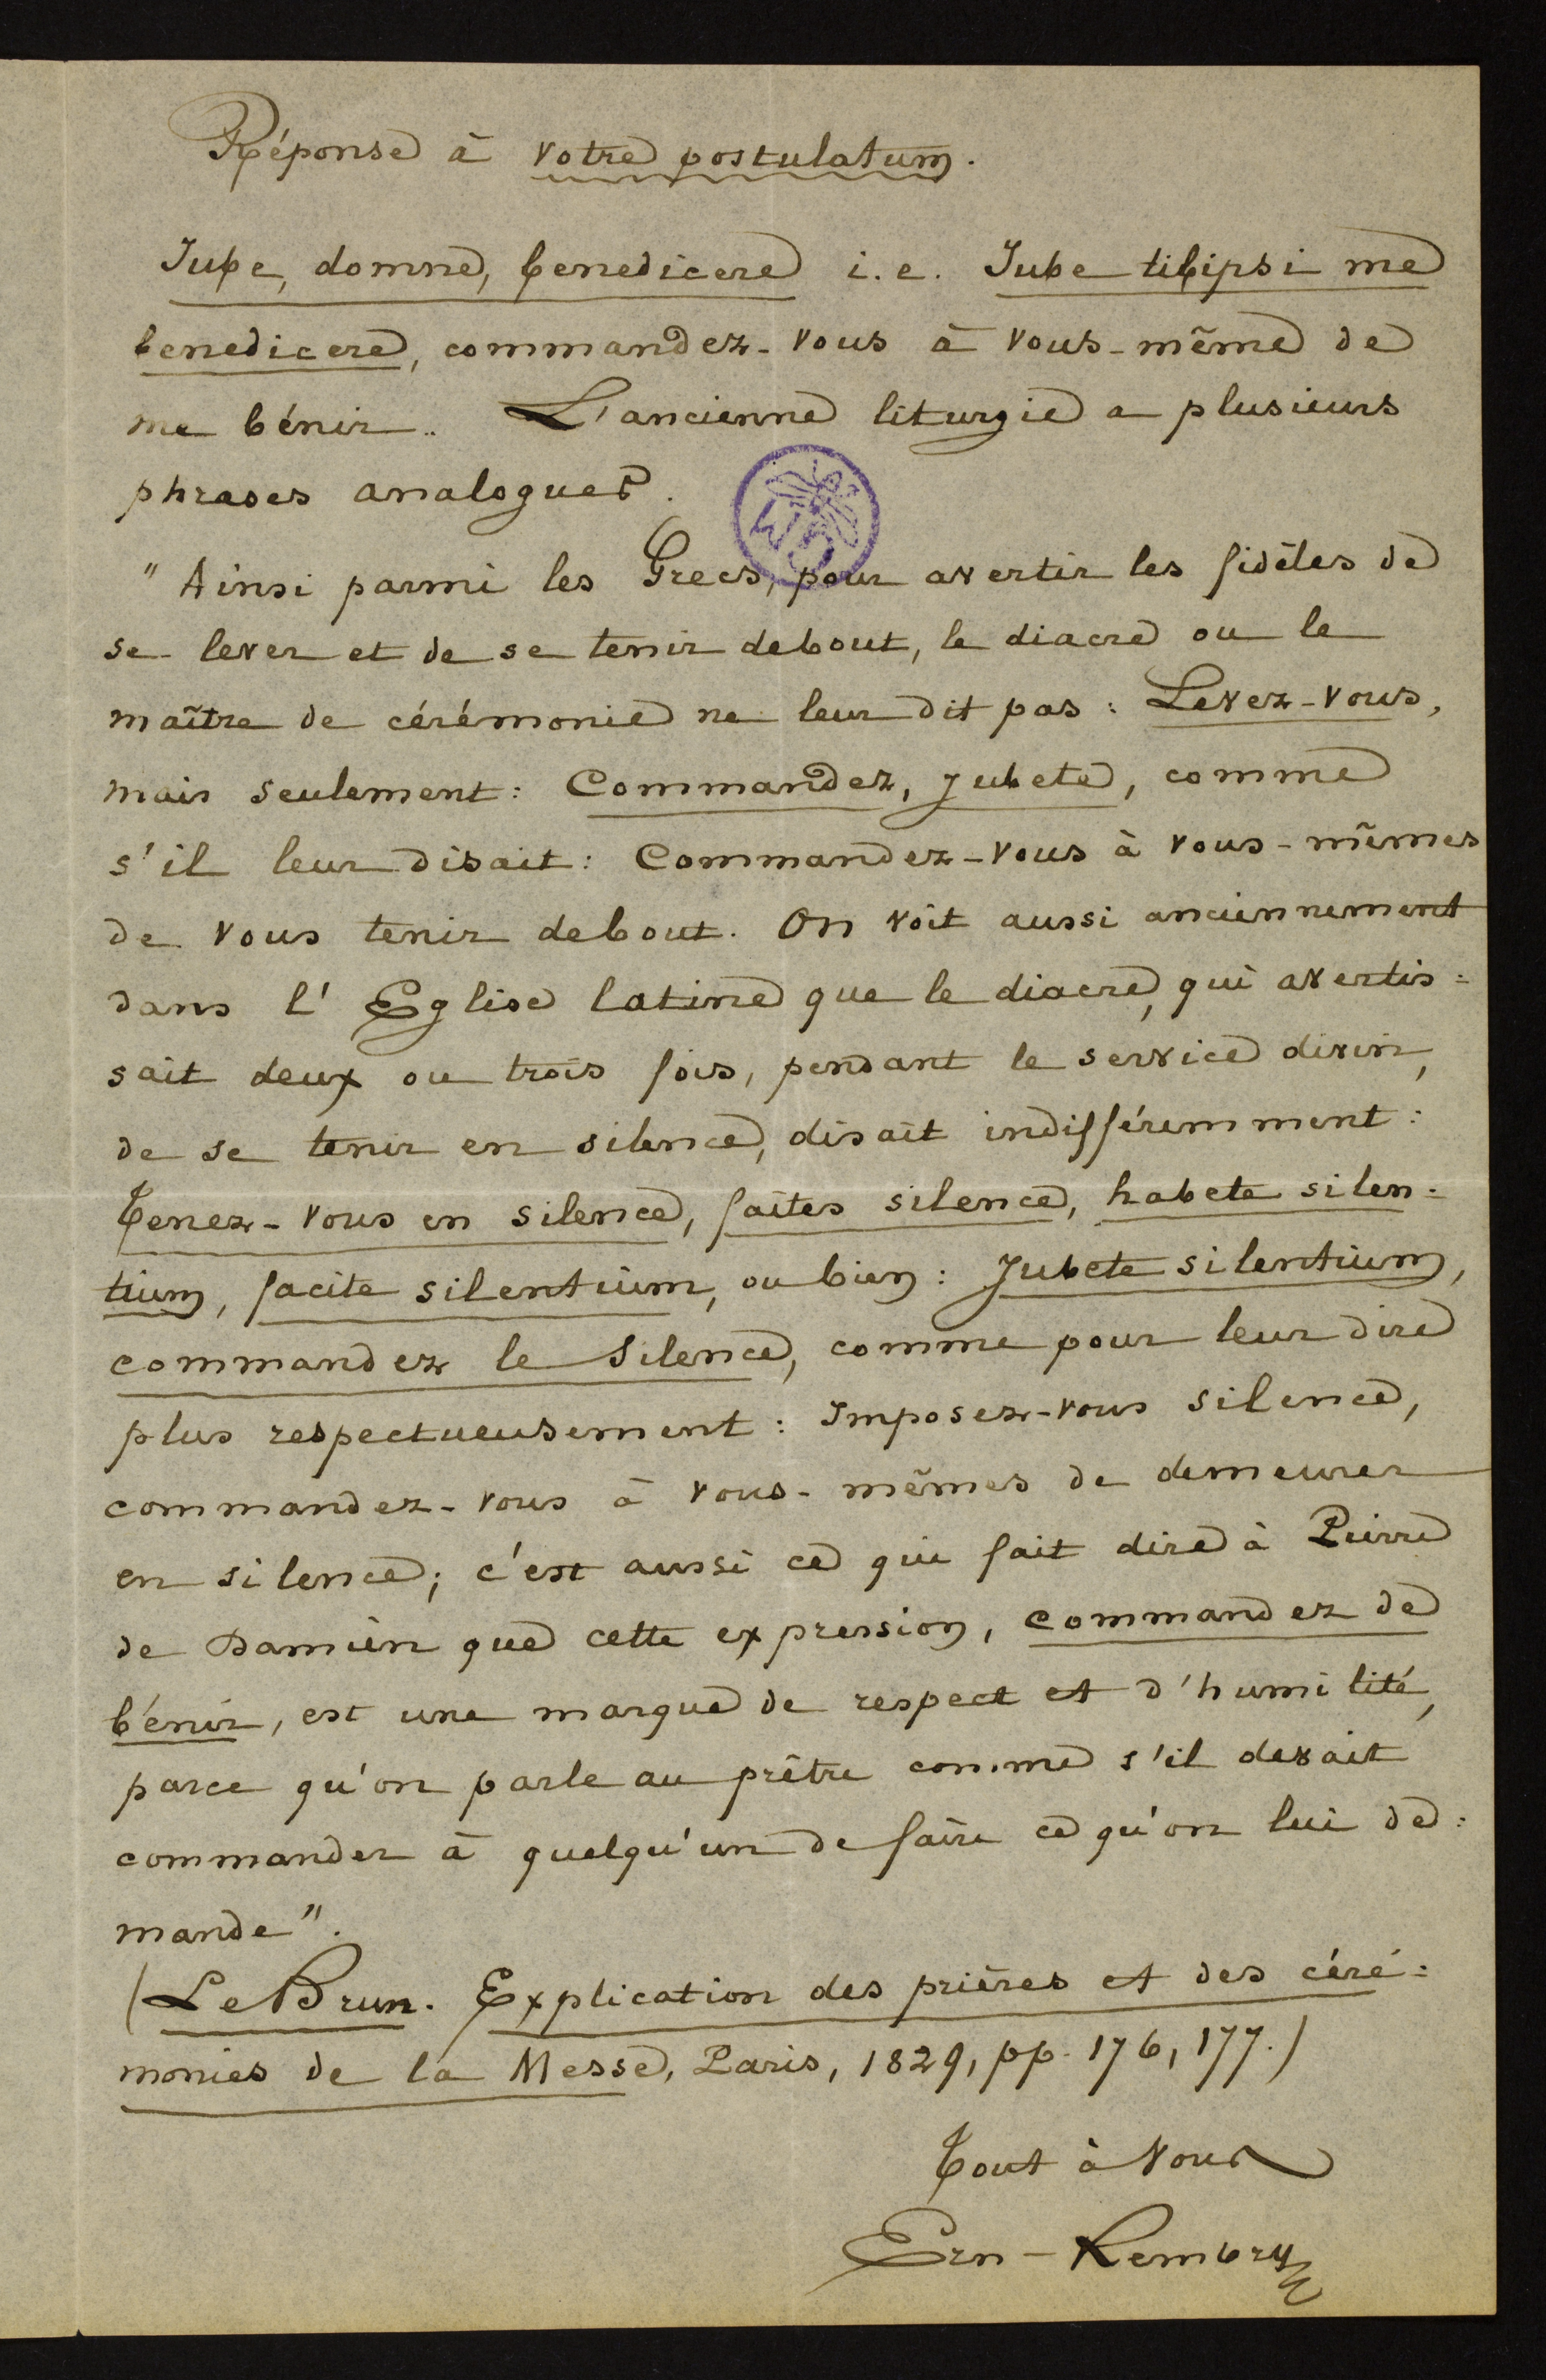 Réponse à votre postulatum.
Jube, domne, benedicere i.e. Jube tibipsi me
benedicere, commandez-vous à vous-même de
me bénir. L'ancienne liturgie a plusieurs
phrases analogues.
"Ainsi parmi les Grecs, pour avertir les fidèles de
se lever et de se tenir debout, le diacre ou le
maître de cérémonie ne leur dit pas : Levez-vous,
mais seulement : Commandez, jubete, comme
s'il leur disait : Commandez-vous à vous-mêmes
de vous tenir debout. On voit aussi anciennement
dans l'Eglise latine que le diacre, qui avertis=
sait deux ou trois fois, pendant le service divin,
de se tenir en silence, disait indifféremment :
Tenez-vous en silence, faites silence, habete silen=
tium, facite silentium, ou bien : Jubete silentium,
commandez le silence, comme pour leur dire
plus respectueusement : Imposez-vous silence,
commandez-vous à vous-mêmes de demeurer
en silence; c'est aussi ce qui fait dire à Pierre
de Damien que cette expression, commandez de
bénir, est une marque de respect et d'humilité,
parce qu'on parle au prêtre comme s'il devait
commander à quelqu'un de faire ce qu'on lui de=
mande".
(Le Brun. Explication des prières et des céré=
monies de la Messe, Paris, 1829, pp. 176, 177.)
Tout à vous
Ern-Rembry